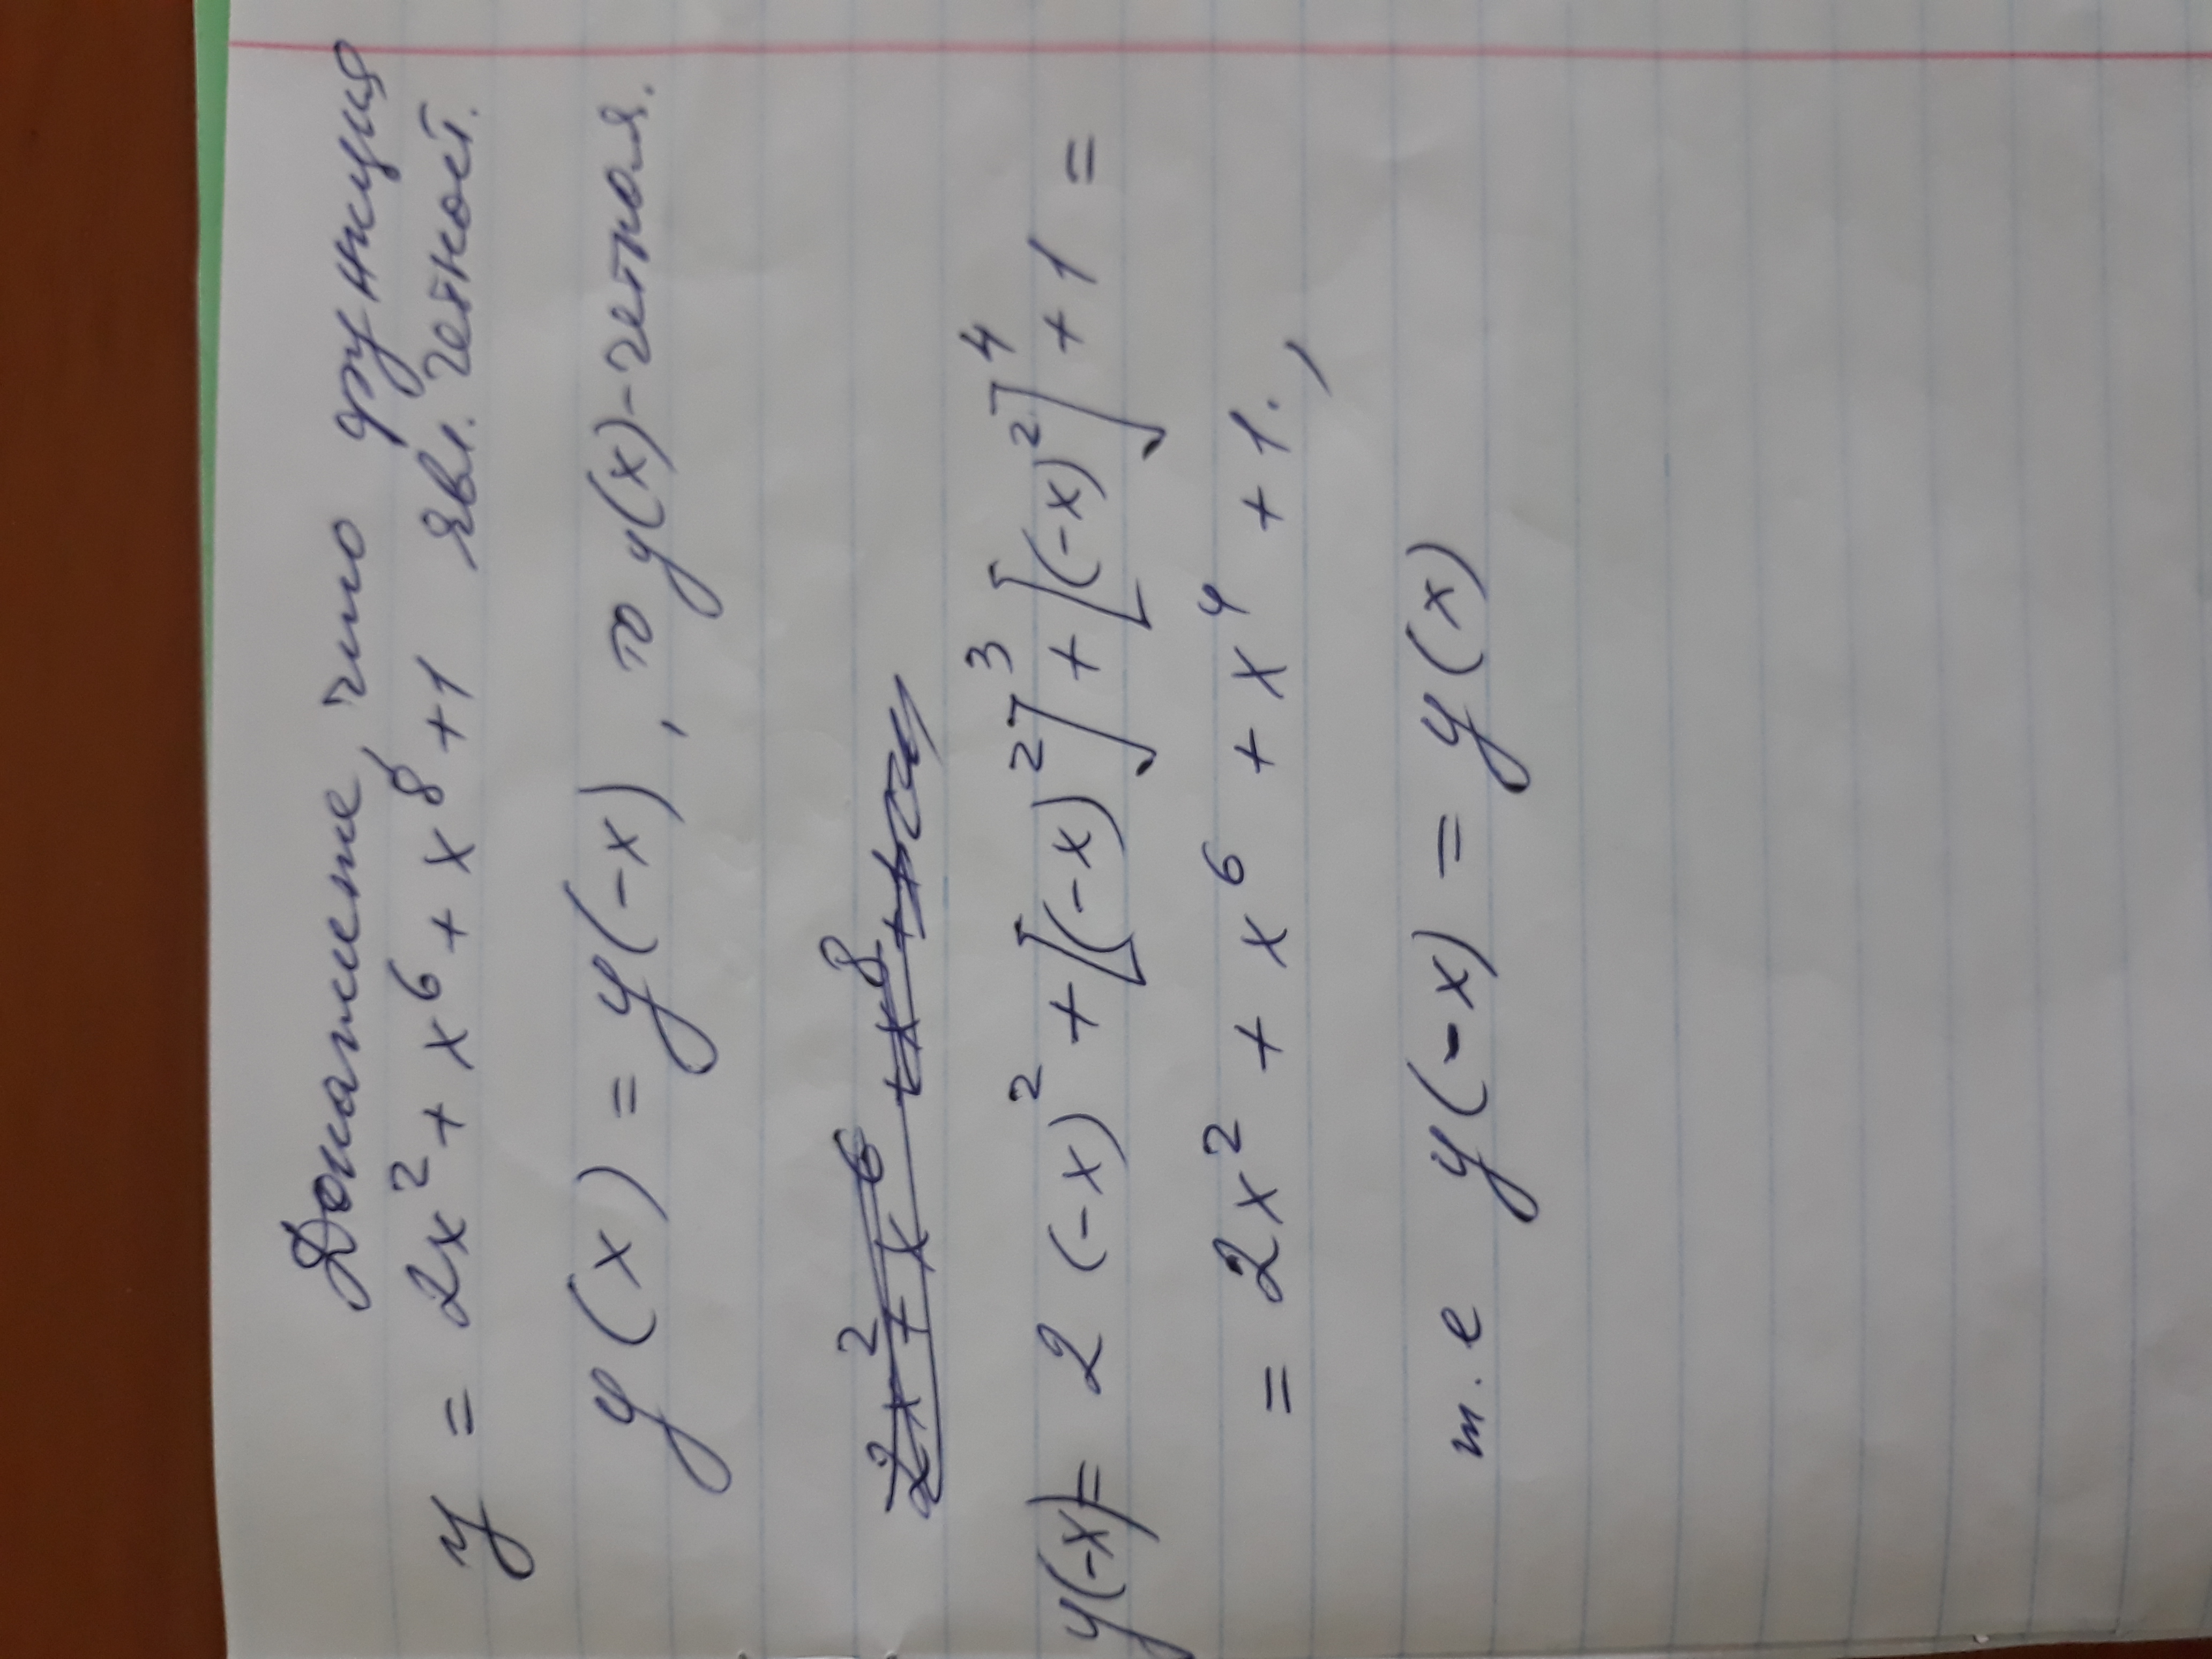 Докажите, что функция
y = 2x² + x⁶ + x⁸ + 1 явл. четной.
y(x) = y(-x), то y(x) - четная.
2x² + x⁶ + x⁸ +
y(-x) = 2(-x)² + [(-x)²]³ + [(-x)²]⁴ + 1 =
= 2x² + x⁶ + x⁴ + 1.,
т.е y(-x) = y(x)